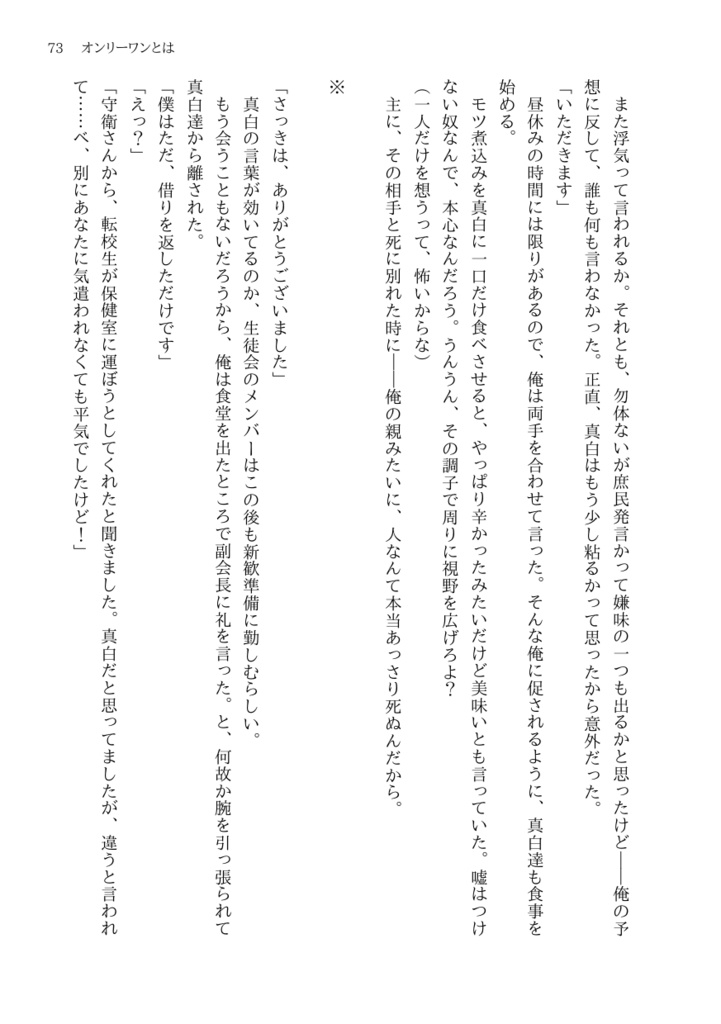 73　オンリーワンとは
　また浮気って言われるか。それとも、勿体ないが庶民発言かって嫌味の一つも出るかと思ったけど――俺の予
想に反して、誰も何も言わなかった。正直、真白はもう少し粘るかって思ったから意外だった。
「いただきます」
　昼休みの時間には限りがあるので、俺は両手を合わせて言った。そんな俺に促されるように、真白達も食事を
始める。
　モツ煮込みを真白に一口だけ食べさせると、やっぱり辛かったみたいだけど美味いとも言っていた。嘘はつけ
ない奴なんで、本心なんだろう。うんうん、その調子で周りに視野を広げろよ？
（一人だけを想うって、怖いからな）
　主に、その相手と死に別れた時に――俺の親みたいに、人なんて本当あっさり死ぬんだから。
※
「さっきは、ありがとうございました」
　真白の言葉が効いてるのか、生徒会のメンバーはこの後も新歓準備に勤しむらしい。
　もう会うこともないだろうから、俺は食堂を出たところで副会長に礼を言った。と、何故か腕を引っ張られて
真白達から離された。
「僕はただ、借りを返しただけです」
「えっ？」
「守衛さんから、転校生が保健室に運ぼうとしてくれたと聞きました。真白だと思ってましたが、違うと言われ
て……べ、別にあなたに気遣われなくても平気でしたけど！」